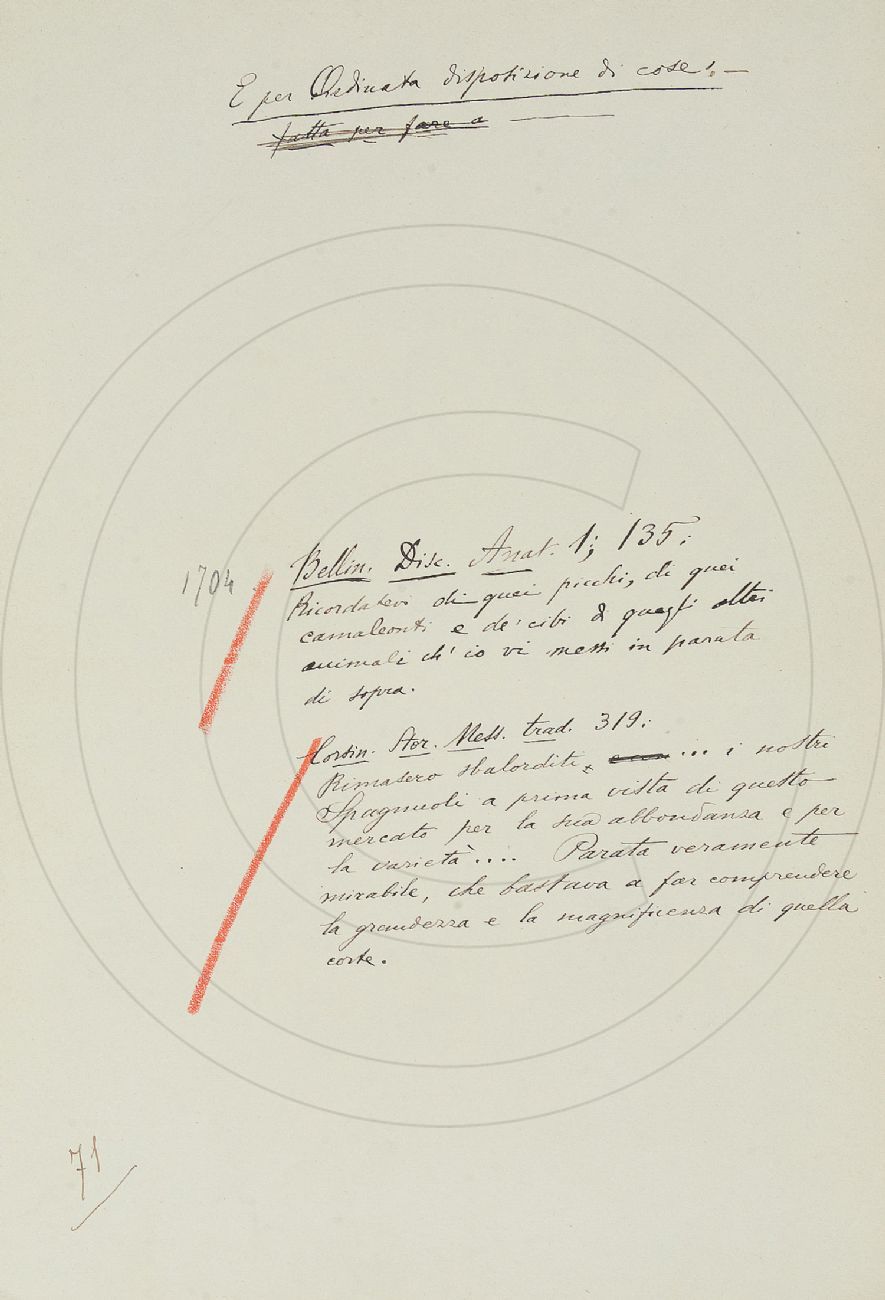 E per Ordinata disposizione di cose :. —
fatta per fare a
1704
Bellin. Disc. Anat. 1; 135:
Ricordatevi di quei picchi, di quei
camaleonti e de' cibi di quegli altri
animali ch' io vi messi in parata
di sopra.
Corsin. Stor. Mess. trad. 319:
Rimasero sbalorditi, ... i nostri
Spagnuoli a prima vista di questo
mercato per la sua abbondanza e per
la varietà .... Parata veramente
mirabile, che bastava a far comprendere
la grandezza e la magnificenza di quella
corte.
71